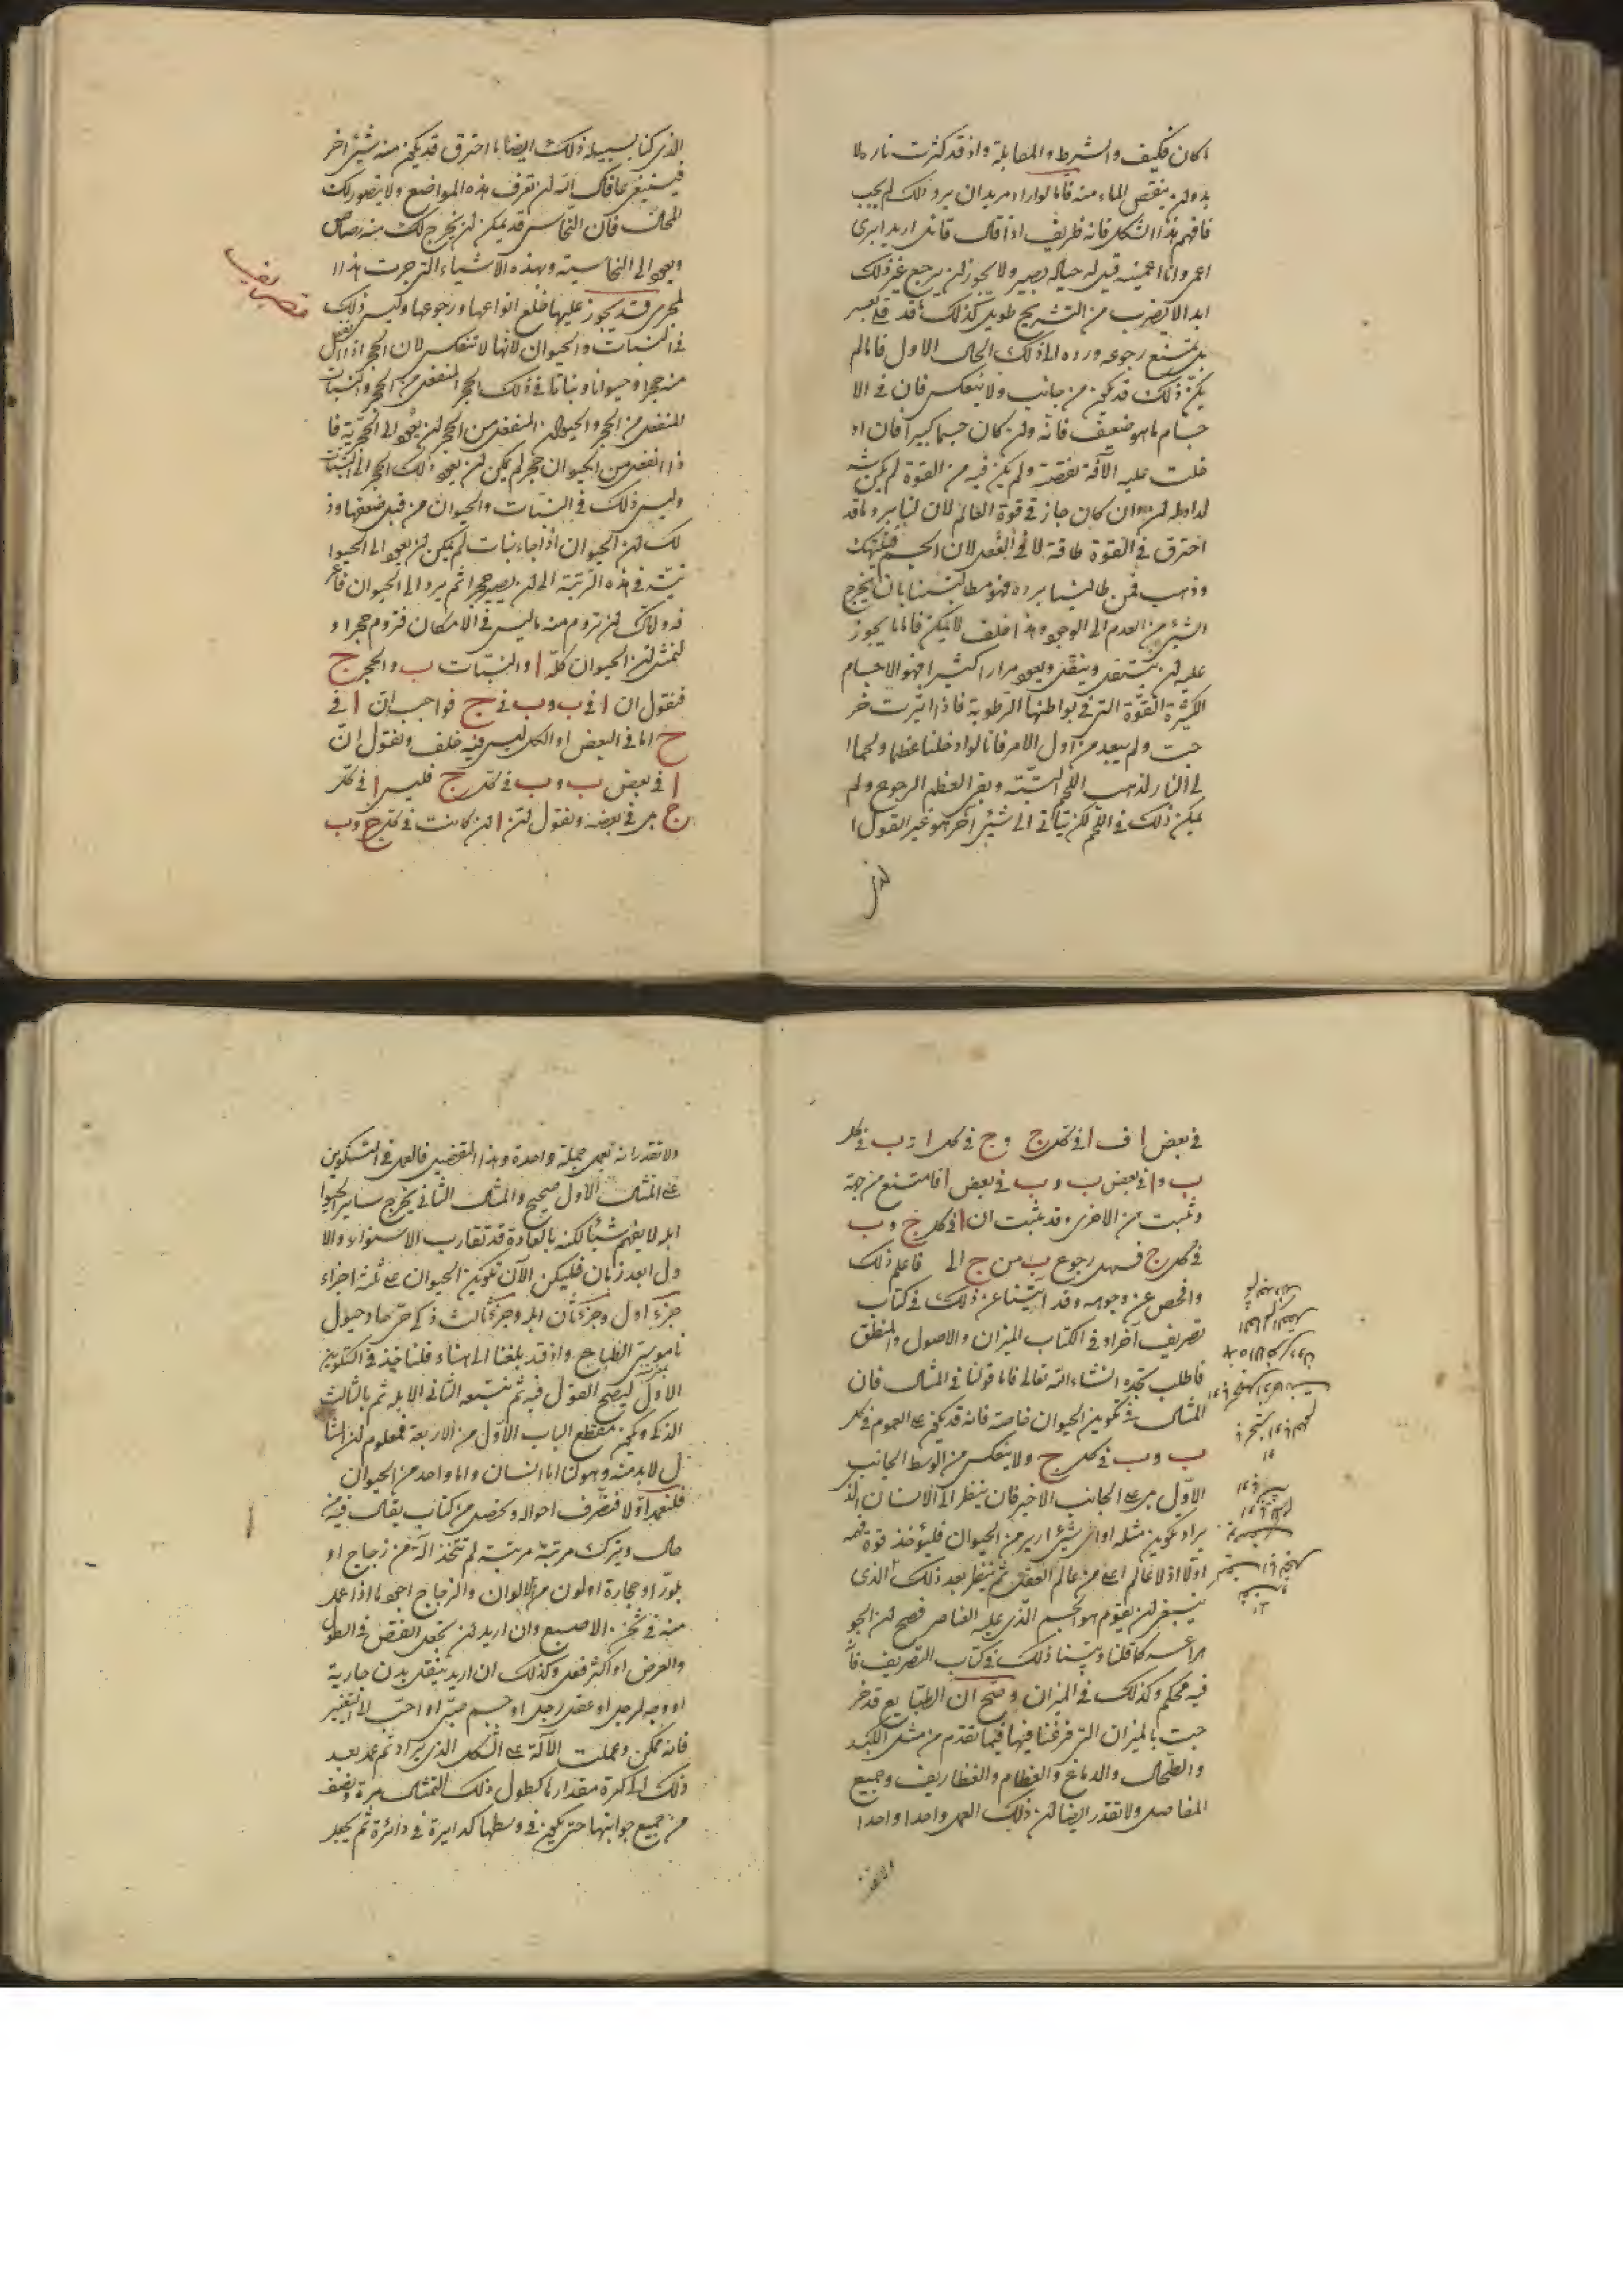 ما كان فكيف والشرط والمقابلة واذ قد كثرت ناره لا
بد ولن ينقص الماء منه فاما لو اراد مريد ان يرد ذلك لم يجب
فافهم هذا الشكل فانه ظريف اذا قال قائل اريد ابرى
اعمى وانا اعمينه قيل له حياله بصير ولا يجوز لن يرجع غير ذلك
ابدا لا بضرب من التشريح طويل كذلك ما قد
بل يمتنع رجوعه ورده الى ذلك الحال الاول فاما لم
يكن ذلك قد يكون من جانب ولا ينعكس فان فى الا
جسام ما هو ضعيف فانه ولن كان جسما كبيرا فان اد
خلت عليه الآفة نقصته ولم يكن فيه من القوة لم يكن
ان كان جاز فى قوة العالم لان لنا يرد ما قد
احترق فى القوة طاقة لا فى الفعل لان الجسم قد نهك
وذهب فمن طالبنا برده فهو مطالبتنا بان يخرج
الشئ من العدم الى الوجود وهذا خلف لا يمكن فاما ما يجوز
عليه لن ينتقل وينقل ويعود مرارا كثيرا فهو الاجسام
الكثيرة القوة التى فى بواطنها الرطوبة فاذا اثرت خر
جت ولم يبعد من اول الامر فانا لو ادخلنا عظما ولحما ا
لى النار لذهب اللحم البتة وبقى العظم المرجوع ولم
يمكن ذلك فى اللحم لكن يتأتى الى شئ آخر هو غير القول ا
لذى
الذى كنا بسبيله ذلك ايضا ما احترق قد يكون منه شئ اخر
فينبغى عافاك الله لن تعرف هذه المواضع ولا يتصور لك
المحال فان النحاس قد يمكن لن يخرج لك منه رصاص
ويعود الى النحاسية وبهذه الاشياء التى جرت هذا ا
لمجرى قد يجوز عليها خلع انواعها ورجوعها وليس ذلك
تصاريف
فى النبات والحيوان لانها لا تنعكس لان الحجر اذا انفصل
منه حجرا وحيوانا ونباتا فى ذلك الحجر المنفصل من الحجر والنبات
المنفصل من الحجر والحيوان المنفصل من الحجر لن يعود الى الحجرية فا
ذا انفصل من الحيوان حجر لم يمكن لن يعود ذلك الحجر الى النبات
وليس ذلك فى النبات والحيوان من قبل ضعفها وذ
لك لن الحيوان اذا جاء نبات لم يمكن لن يعود الى الحيوا
نية فى هذه الرتبة الى لن يصير حجرا ثم يرد الى الحيوان فاعر
فه ولاك لن تروم منه ما ليس فى الامكان فتروم حجرا و
لنمثل لن الحيوان كله ا والنبات ب والحجر ج
فنقول ان ا فى ب وب فى ج فواجب ان ا فى
ج اما فى البعض او الكل ليس فيه خلف ونقول ان
ا فى بعض ب وب فى كل ج فليس ا فى كل
ج بل فى بعضه ونقول لن ا لن كانت فى كل ج وب
فى بعض ا ف ا فى كل ج وج فى كل ا وب فى كل
ب وا فى بعض ب وب فى بعض ا فامتنع من جهة
وثبت من الاخرى وقد ثبت ان ا فى كل ج وب
فى كل ج فسهل رجوع ب من ج الى فاعلم ذلك
وافحص عن وجوهه وقد اتينا عن ذلك فى كتاب
تصريف آخر او فى الكتاب الميزان والاصول والمنطق
فاطلب تجده انشاء الله تعالى فاما قولنا فى المثال فان
المثال فى تكوين الحيوان خاصة فانه قد يكون على العموم فى كل
ب وب فى كل ج ولا ينعكس من الوسط الجانب
الاول بل على الجانب الاخير فان ينظر الى الانسان الذ
يراد تكوين مثله او اى شئ اريد من الحيوان فليؤخذ قوة فهمه
اولا اذ لا عالم اعلى من عالم العقل ثم ينظر بعد ذلك الذى
ينبغى لن يقوم هو الجسم الذى عليه العناصر فصح لن الجو
اهر اعسر كما قلنا وبينا ذلك فى كتاب التصريف فا
فيه محكم وكذلك فى الميزان وصح ان الطبايع قد خر
جت بالميزان التى فرغنا فيها فيما تقدم من مثل الكبد
والطحال والدماغ والعظام والغظاريف وجميع
المفاصل ولا تقدر ايضا لن ذلك العمل واحدا واحدا
ولا تقدر انه يعمل جملة واحدة وهذا التفصيل فالعمل فى التكوين
على المثال الاول صحيح والمثال الثانى يخرج ساير الحيوا
ابله لا يفهم شيئا لكنه بالعادة قد تقارب الاستواء والا
ول ابعد زمان فليكن الآن تكوين الحيوان على ثلثة اجزاء
جزء اول وجزء ثان ابله وجزء ثالث ذكى حرها وحيول
ناموس الطباع واذ قد بلغنا الى هناء فلناخذ فى التكوين
الاول ليصح القول فيه ثم نتبعه الثانى الابله ثم بالثالث
الذكى ويكون مقطع الباب الاول من الاربعة فمعلوم لن المثا
ل لا بد منه وهو لنا اما انسان واما واحد من الحيوان
فلنعمد اولا فنصرف احواله ونحصل من كتاب يقال فيه من
حال ويترك مرتبة مرتبة لم تتخذ آلة من زجاج او
بلور او حجارة او لون من الالوان والزجاج اجود ما اذا عمل
منه فى ثخن الاصبع وان اريد لن يجعل النقص فى الطول
والعرض او اكثر فعل وكذلك ان اريد ينقل بدن جارية
او وجه لرجل او عقل رجل او جسم صبى او احب لا التغيير
فانه ممكن وعملت الآلة على الشكل الذى يراد ثم عمد بعد
ذلك الى كرة مقدارها كطول ذلك التمثال مرة ونصف
من جميع جوانبها حتى يكون فى وسطها كدايرة فى دائرة ثم يجعل